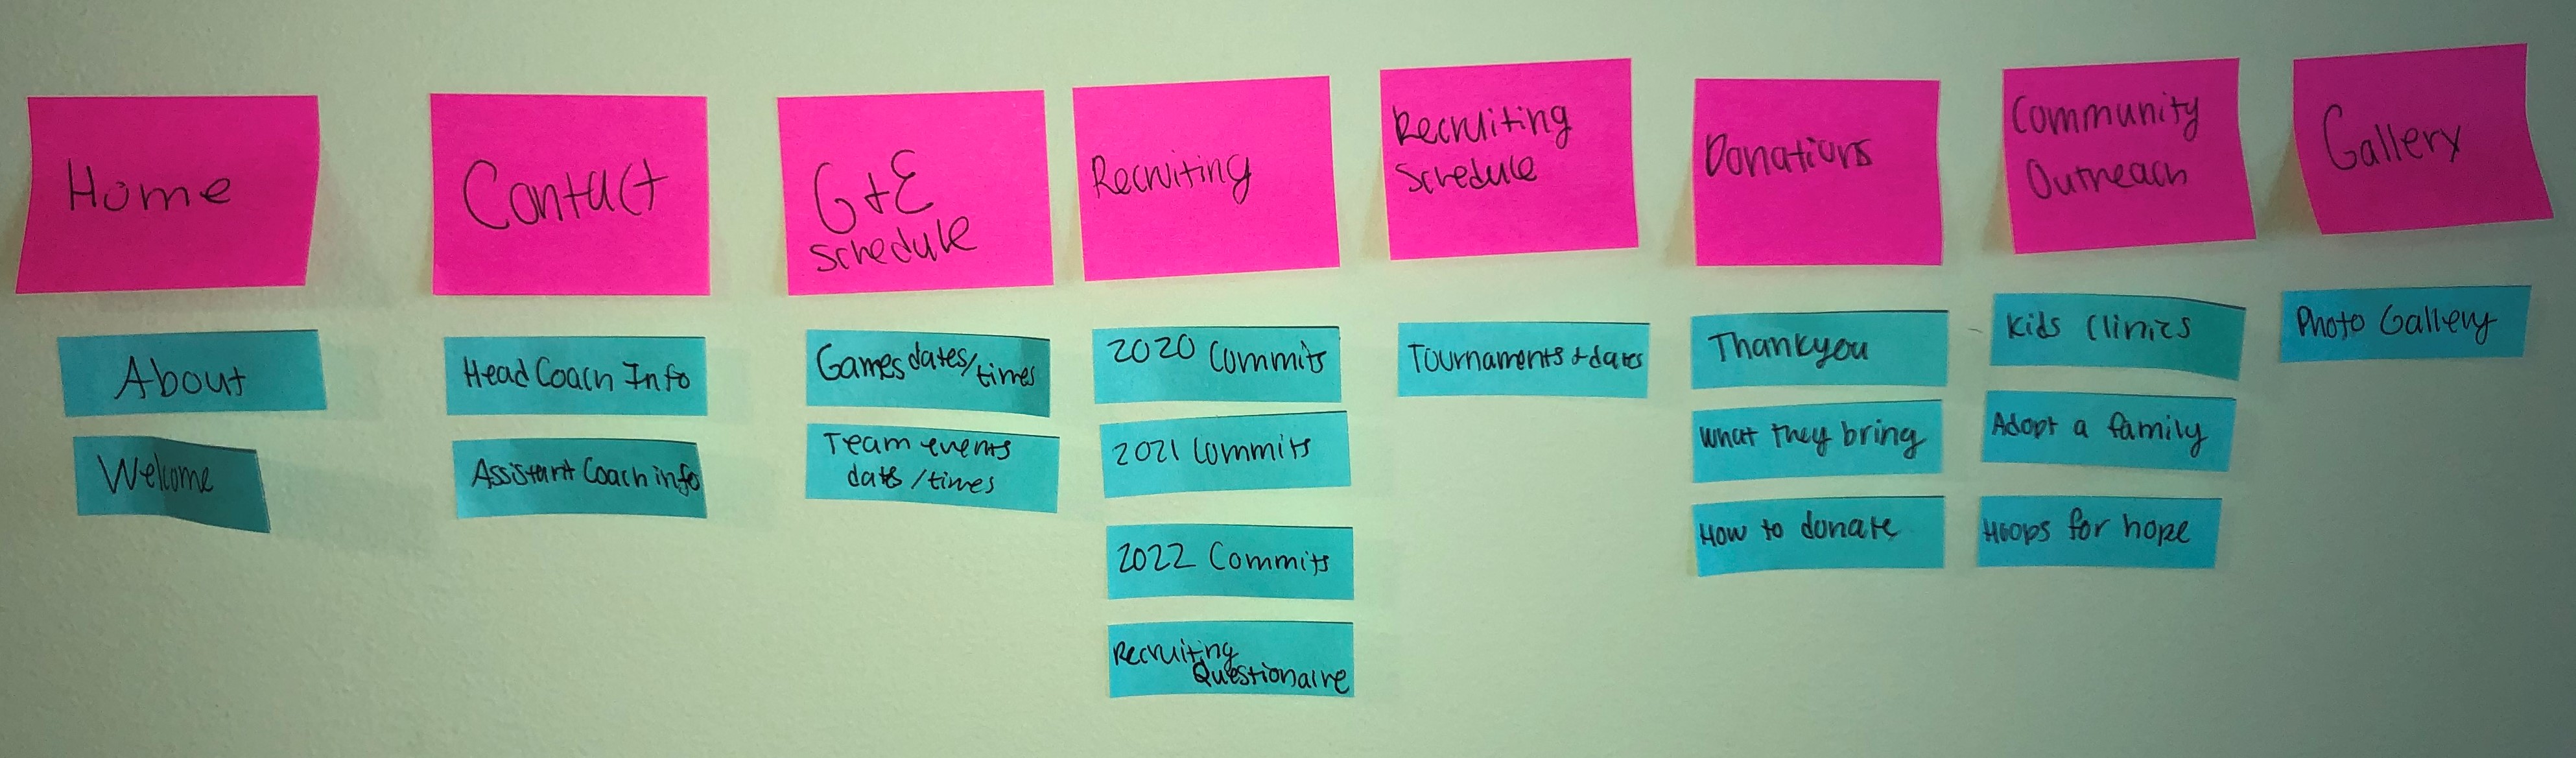 Home
About
Welcome
Contact
Head Coach Info
Assistant Coach info
G+E
schedule
Games dates/times
Team events
dates/times
Recruiting
2020 Commits
2021 Commits
2022 Commits
Recruiting
Questionaire
Recruiting
Schedule
Tournaments + dates
Donations
Thankyou
What they bring
How to donate
Community
Outreach
Kids Clinics
Adopt a family
Hoops for hope
Gallery
Photo Gallery